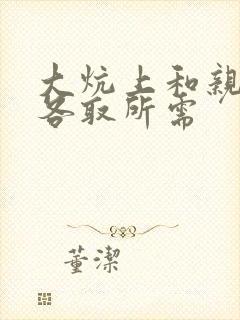 大炕上和親
各取所需
董潔